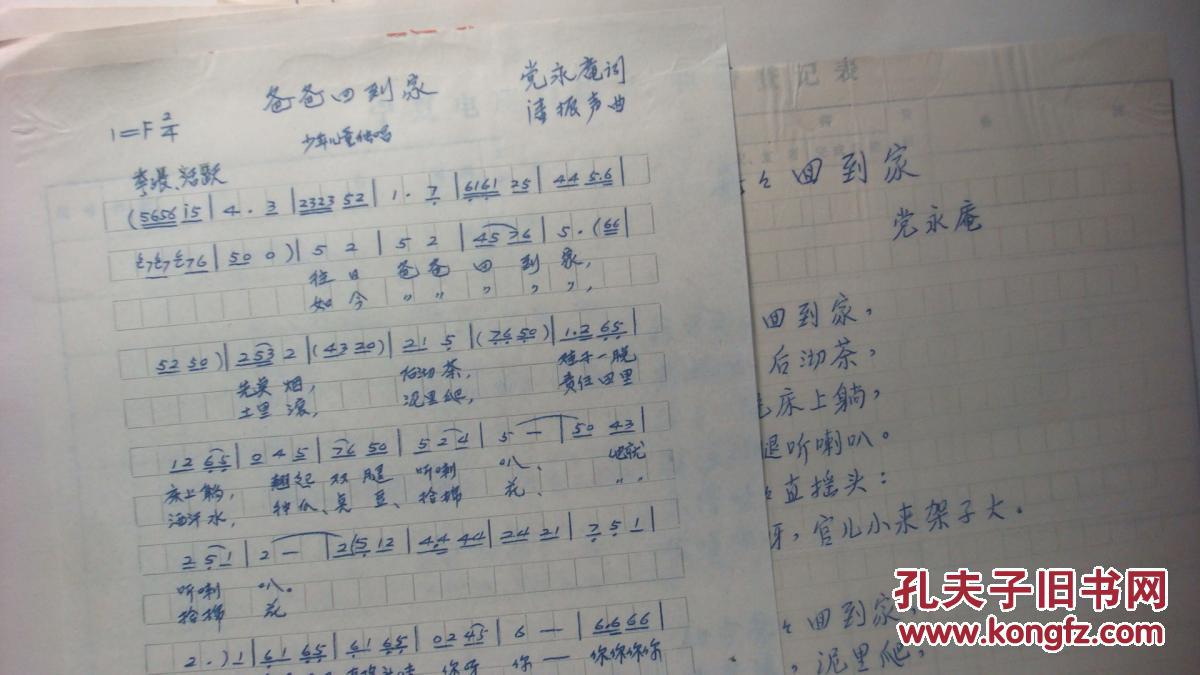 爸爸回到家
党永庵词
1=F 2/4
振声曲
少年儿童
活跃
(5656 i5 | 4. 3 | 2323 52 | 1. 7 | 6161 25 | 44 5.6 |
50 0) | 5 2 | 5 2 | 45 76 | 5. (66 |
往日 爸爸 回到家,
如今 〃 〃 〃 〃 〃,
52 50) | 253 2 | (43 20) | 21 5 | (76 50) | 1.2 65 |
烟, 后沏茶, 鞋子一脱
土里滚, 泥里爬, 责任田里
12 65 | 0 4 5 | 76 50 | 5 24 | 5 — | 50 43 |
床上躺, 翘起双腿 听喇叭、 他就
洒汗水, 种瓜、臭豆、拾棉花、 〃 〃
2 51 | 2 — | 2(5 12 | 4.4 44 | 24 21 | 7 5 1 |
听喇叭。
拾棉花
2.) 1 | 61 65 | 61 65 | 02 45 | 6 — | 6.6 66 |
你听 你— 你你你你
记表
回到家
党永庵
回到家,
后沏茶,
床上躺,
腿听喇叭。
直摇头:
呀,官儿小来架子大。
回到家,
,泥里爬,
孔夫子旧书网
www.kongfz.com